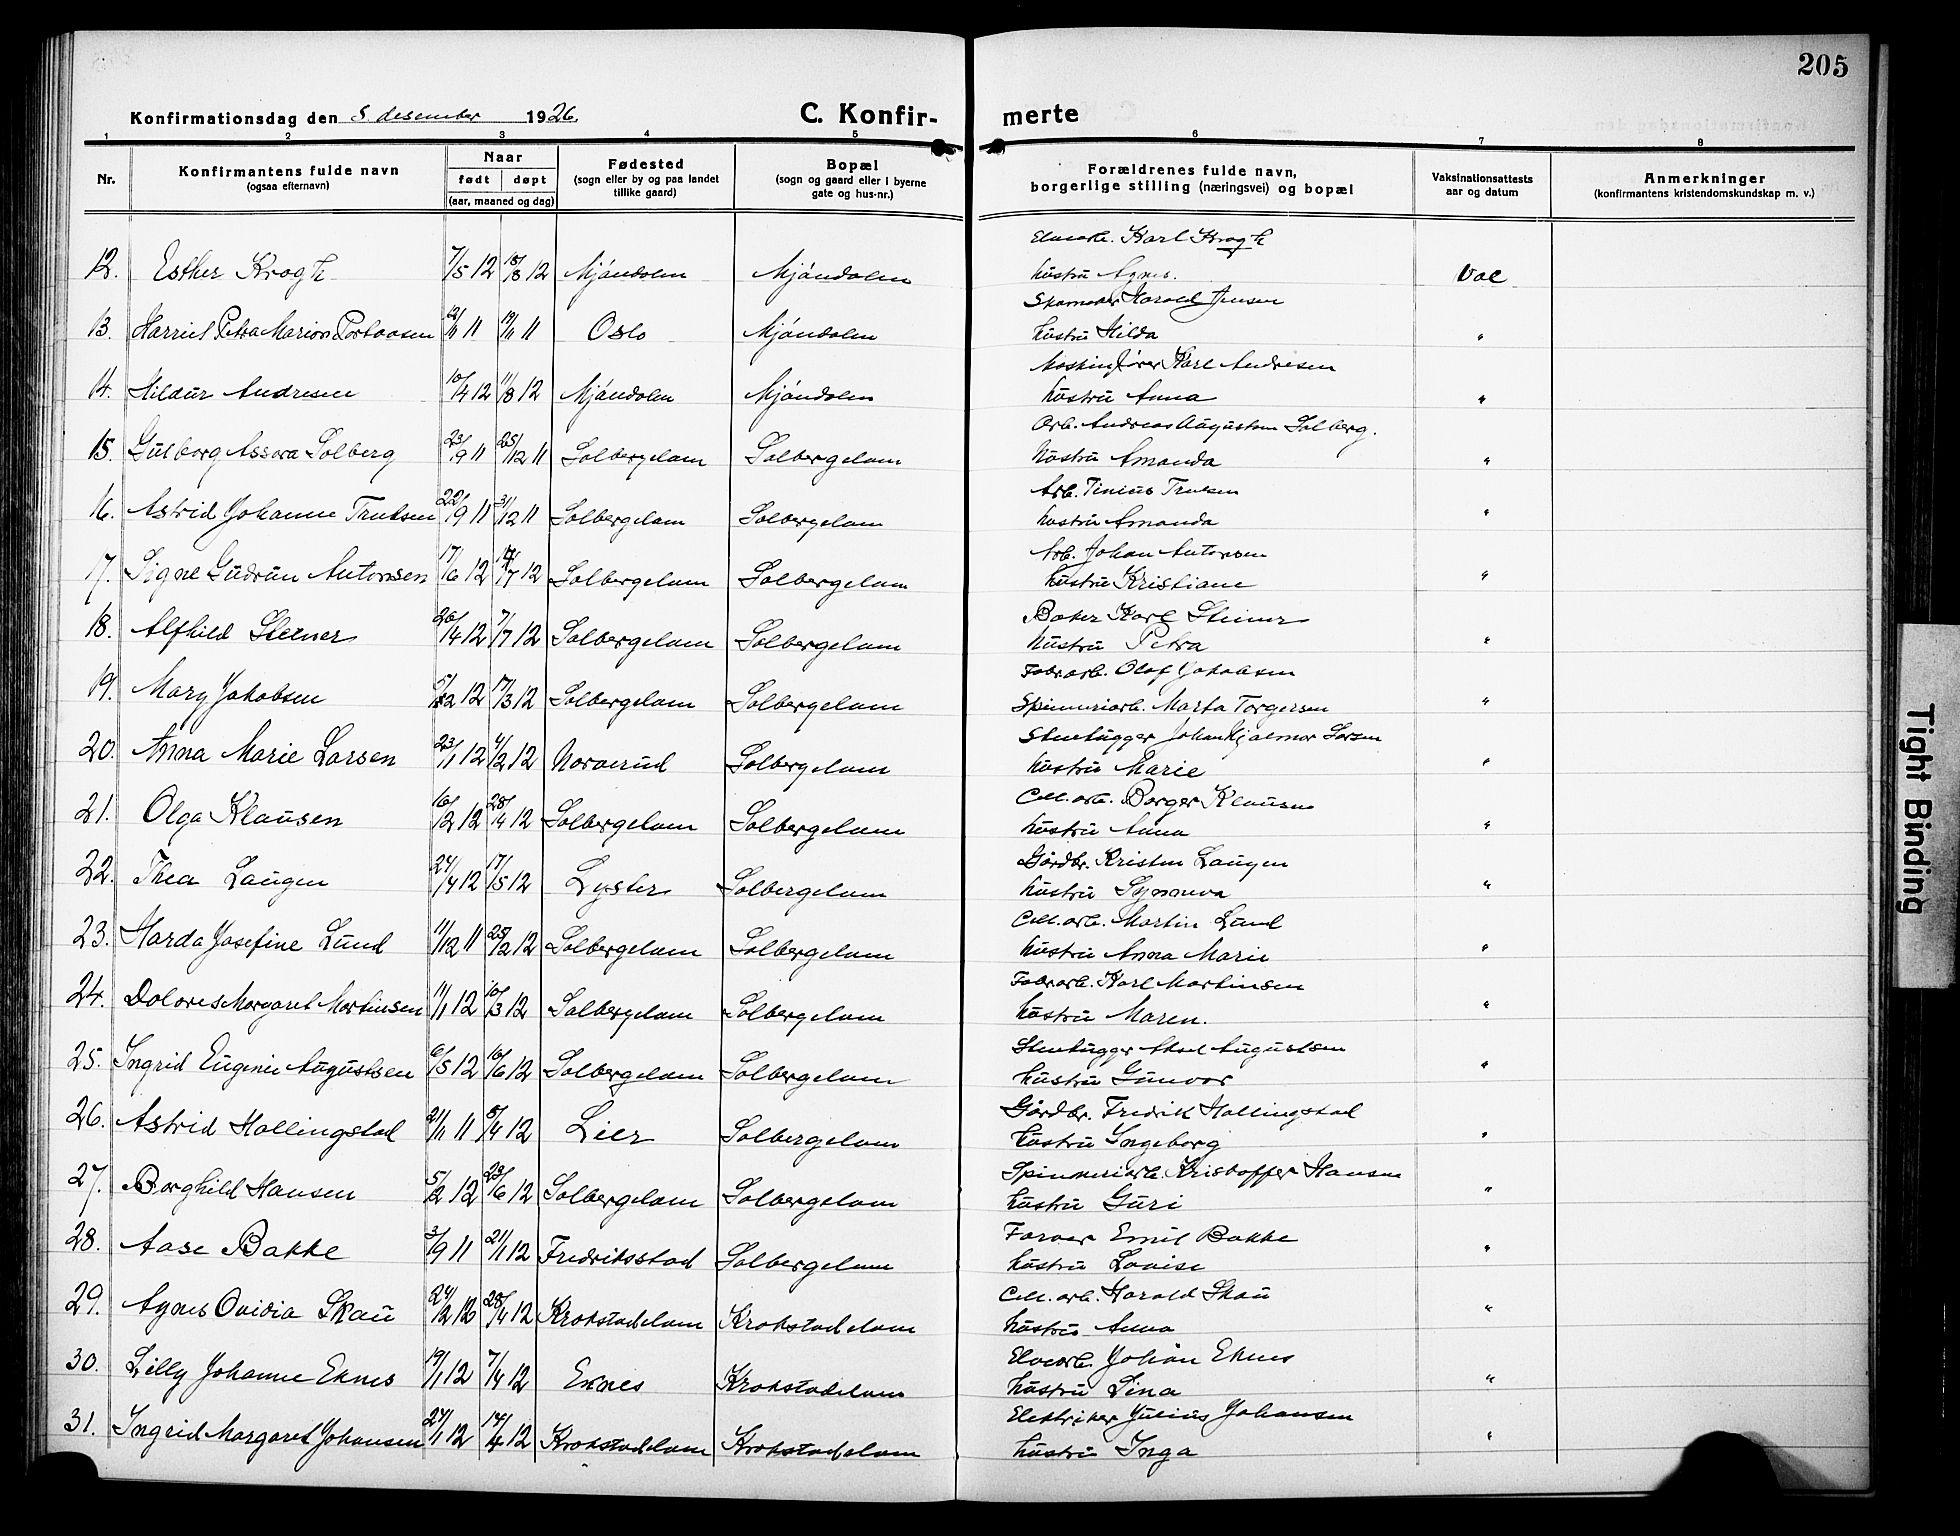 205
Konfirmationsdag den 5 desember 1926.
C. Konfir-
merte
1 2 3 4 5 6 7 8
Nr.
Konfirmantens fulde navn
(ogsaa efternavn)
Naar
født døpt
(aar, maaned og dag)
Fødested
(sogn eller by og paa landet
tillike gaard)
Bopæl
(sogn og gaard eller i byerne
gate og hus-nr.)
Forældrenes fulde navn,
borgerlige stilling (næringsvei) og bopæl
Vaksinationsattests
aar og datum
Anmerkninger
(konfirmantens kristendomskundskap m. v.)
Karl Krogh
12. Esther Krogh 7/5 12 18/8 12 Mjöndalen Mjöndalen hustru Agnes. Vac
Skomaker Harald Jensen
13. Harriet Petra Marion Portaasen 12/11 11 19/11 11 Oslo Mjöndalen hustru Hilda "
Maskinfører Karl Andresen
14. Hildur Andresen 10/4 12 11/8 12 Mjöndalen Mjöndalen hustru Anna "
Arb. Andreas Augustson Solberg.
15. Gulborg Assora Solberg 23/9 11 25/12 11 Solbergelven Solbergelven hustru Amanda "
Arb. Tinius Trulsen
16. Astrid Johanne Trulsen 22/9 11 31/12 11 Solbergelven Solbergelven hustru Amanda "
Arb. Johan Antonsen
17. Signe Gudrun Antonsen 17/6 12 14/7 12 Solbergelven Solbergelven hustru Kristiane "
Baker Karl Steiner
18. Alfhild Steiner 26/4 12 7/7 12 Solbergelven Solbergelven hustru Petra "
Fabr.arb. Olaf Jakobsen
19. Mary Jakobsen 5/2 12 17/3 12 Solbergelven Solbergelven Spinneriarb. Marta Torgersen "
Stenhugger Johan Hjalmar Larsen
20. Anna Marie Larsen 23/1 12 4/2 12 Norverud Solbergelven hustru Marie "
Cell.arb. Borger Klausen
21. Olga Klausen 16/2 12 28/4 12 Solbergelven Solbergelven hustru Anna "
Gårdbr. Kristen Laugen
22. Thea Laugen 24/4 12 17/5 12 Lyster Solbergelven hustru Synneva "
Cell.arb. Martin Lund
23. Harda Josefine Lund 11/12 11 25/2 12 Solbergelven Solbergelven hustru Anna Marie "
Fabr.arb. Karl Martinsen
24. Dolores Margaret Martinsen 11/1 12 10/3 12 Solbergelven Solbergelven hustru Maren. "
Stenhugger Aksel Augustsen
25. Ingrid Eugenie Augustsen 6/5 12 16/6 12 Solbergelven Solbergelven hustru Gunvor "
Gårdbr. Fredrik Hallingstad
26. Astrid Hallingstad 21/11 11 5/4 12 Lier Solbergelven hustru Ingeborg "
Spinneriarb. Kristoffer Hansen
27. Borghild Hansen 5/2 12 23/6 12 Solbergelven Solbergelven hustru Guri "
Farver Emil Bakke
28. Aase Bakke 3/9 11 21/1 12 Fredriksstad Solbergelven hustru Lovise "
Cell.arb. Harald Skau
29. Agnes Ovidia Skau 24/2 12 28/4 12 Krokstadelven Krokstadelven hustru Anna "
Elvearb. Johan Eknes
30. Lilly Johanne Eknes 19/1 12 7/4 12 Eknes Krokstadelven hustru Lina "
Elektriker Julius Johansen
31. Ingrid Margaret Johansen 24/1 12 14/4 12 Krokstadelven Krokstadelven hustru Inga "
Tight Binding